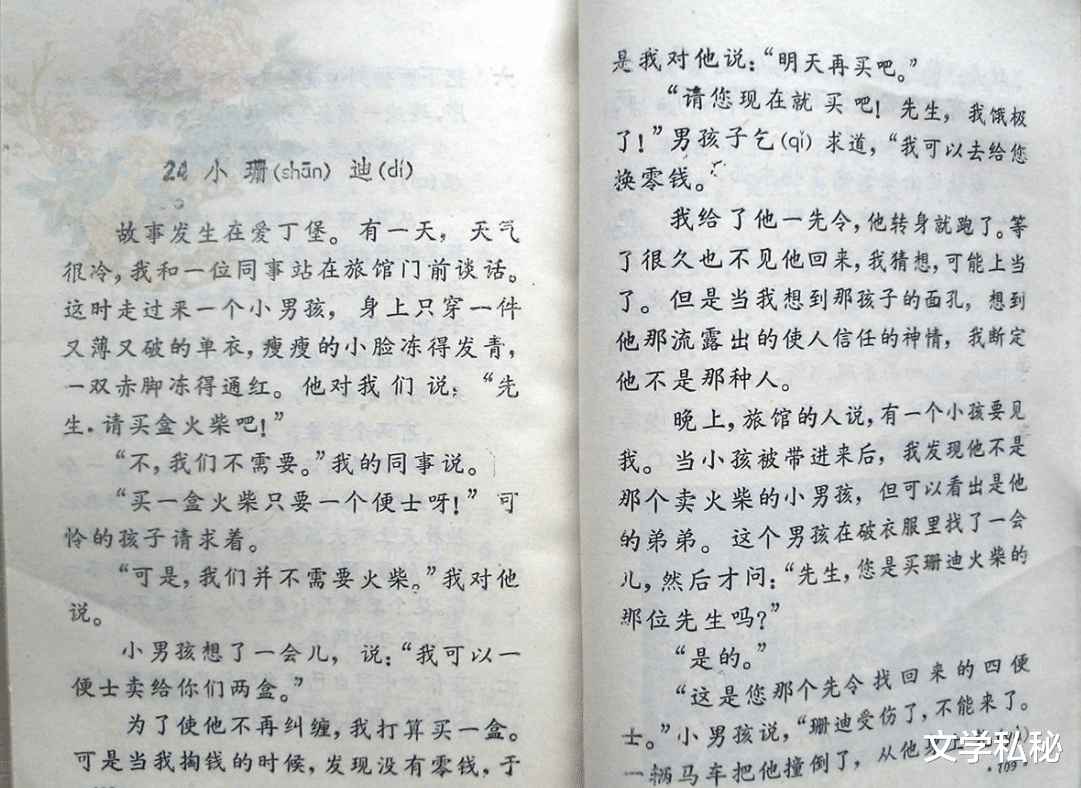 24 小珊(shān)迪(dí)
故事发生在爱丁堡。有一天，天气
很冷，我和一位同事站在旅馆门前谈话。
这时走过来一个小男孩，身上只穿一件
又薄又破的单衣，瘦瘦的小脸冻得发青，
一双赤脚冻得通红。他对我们说：“先
生．请买盒火柴吧！”
“不，我们不需要。”我的同事说。
“买一盒火柴只要一个便士呀！”可
怜的孩子请求着。
“可是，我们并不需要火柴。”我对他
说。
小男孩想了一会儿，说：“我可以一
便士卖给你们两盒。”
为了使他不再纠缠，我打算买一盒。
可是当我掏钱的时候，发现没有零钱，于
是我对他说：“明天再买吧。”
“请您现在就买吧！先生，我饿极
了！”男孩子乞(qǐ)求道，“我可以去给您
换零钱。”
我给了他一先令，他转身就跑了。等
了很久也不见他回来，我猜想，可能上当
了。但是当我想到那孩子的面孔，想到
他那流露出的使人信任的神情，我断定
他不是那种人。
晚上，旅馆的人说，有一个小孩要见
我。当小孩被带进来后，我发现他不是
那个卖火柴的小男孩，但可以看出是他
的弟弟。这个男孩在破衣服里找了一会
儿，然后才问：“先生，您是买珊迪火柴的
那位先生吗？”
“是的。”
“这是您那个先令找回来的四便
士。”小男孩说，“珊迪受伤了，不能来了。
一辆马车把他撞倒了，从他
·109·
文学私秘